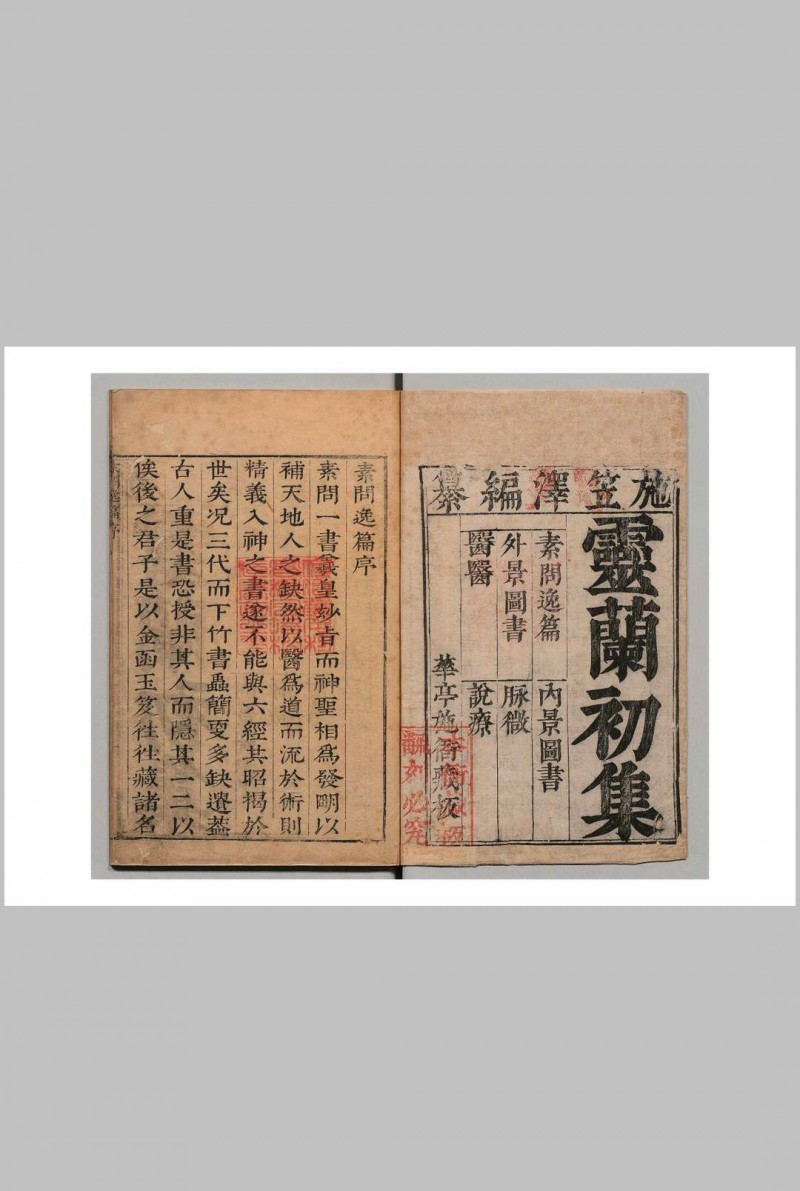 施笠澤編纂
靈蘭初集
素問逸篇
內景圖書
外景圖書
脉微
醫醫
說療
華亭施衙藏板
翻如必究
素問逸篇序
素問一書羲皇妙旨而神聖相為發明以
補天地人之缺然以醫為道而流於術則
精義入神之書遂不能與六經共昭揭於
世矣况三代而下竹書蟲簡更多缺遺葢
古人重是書恐授非其人而隱其一二以
俟後之君子是以金函玉笈徃徃藏諸名